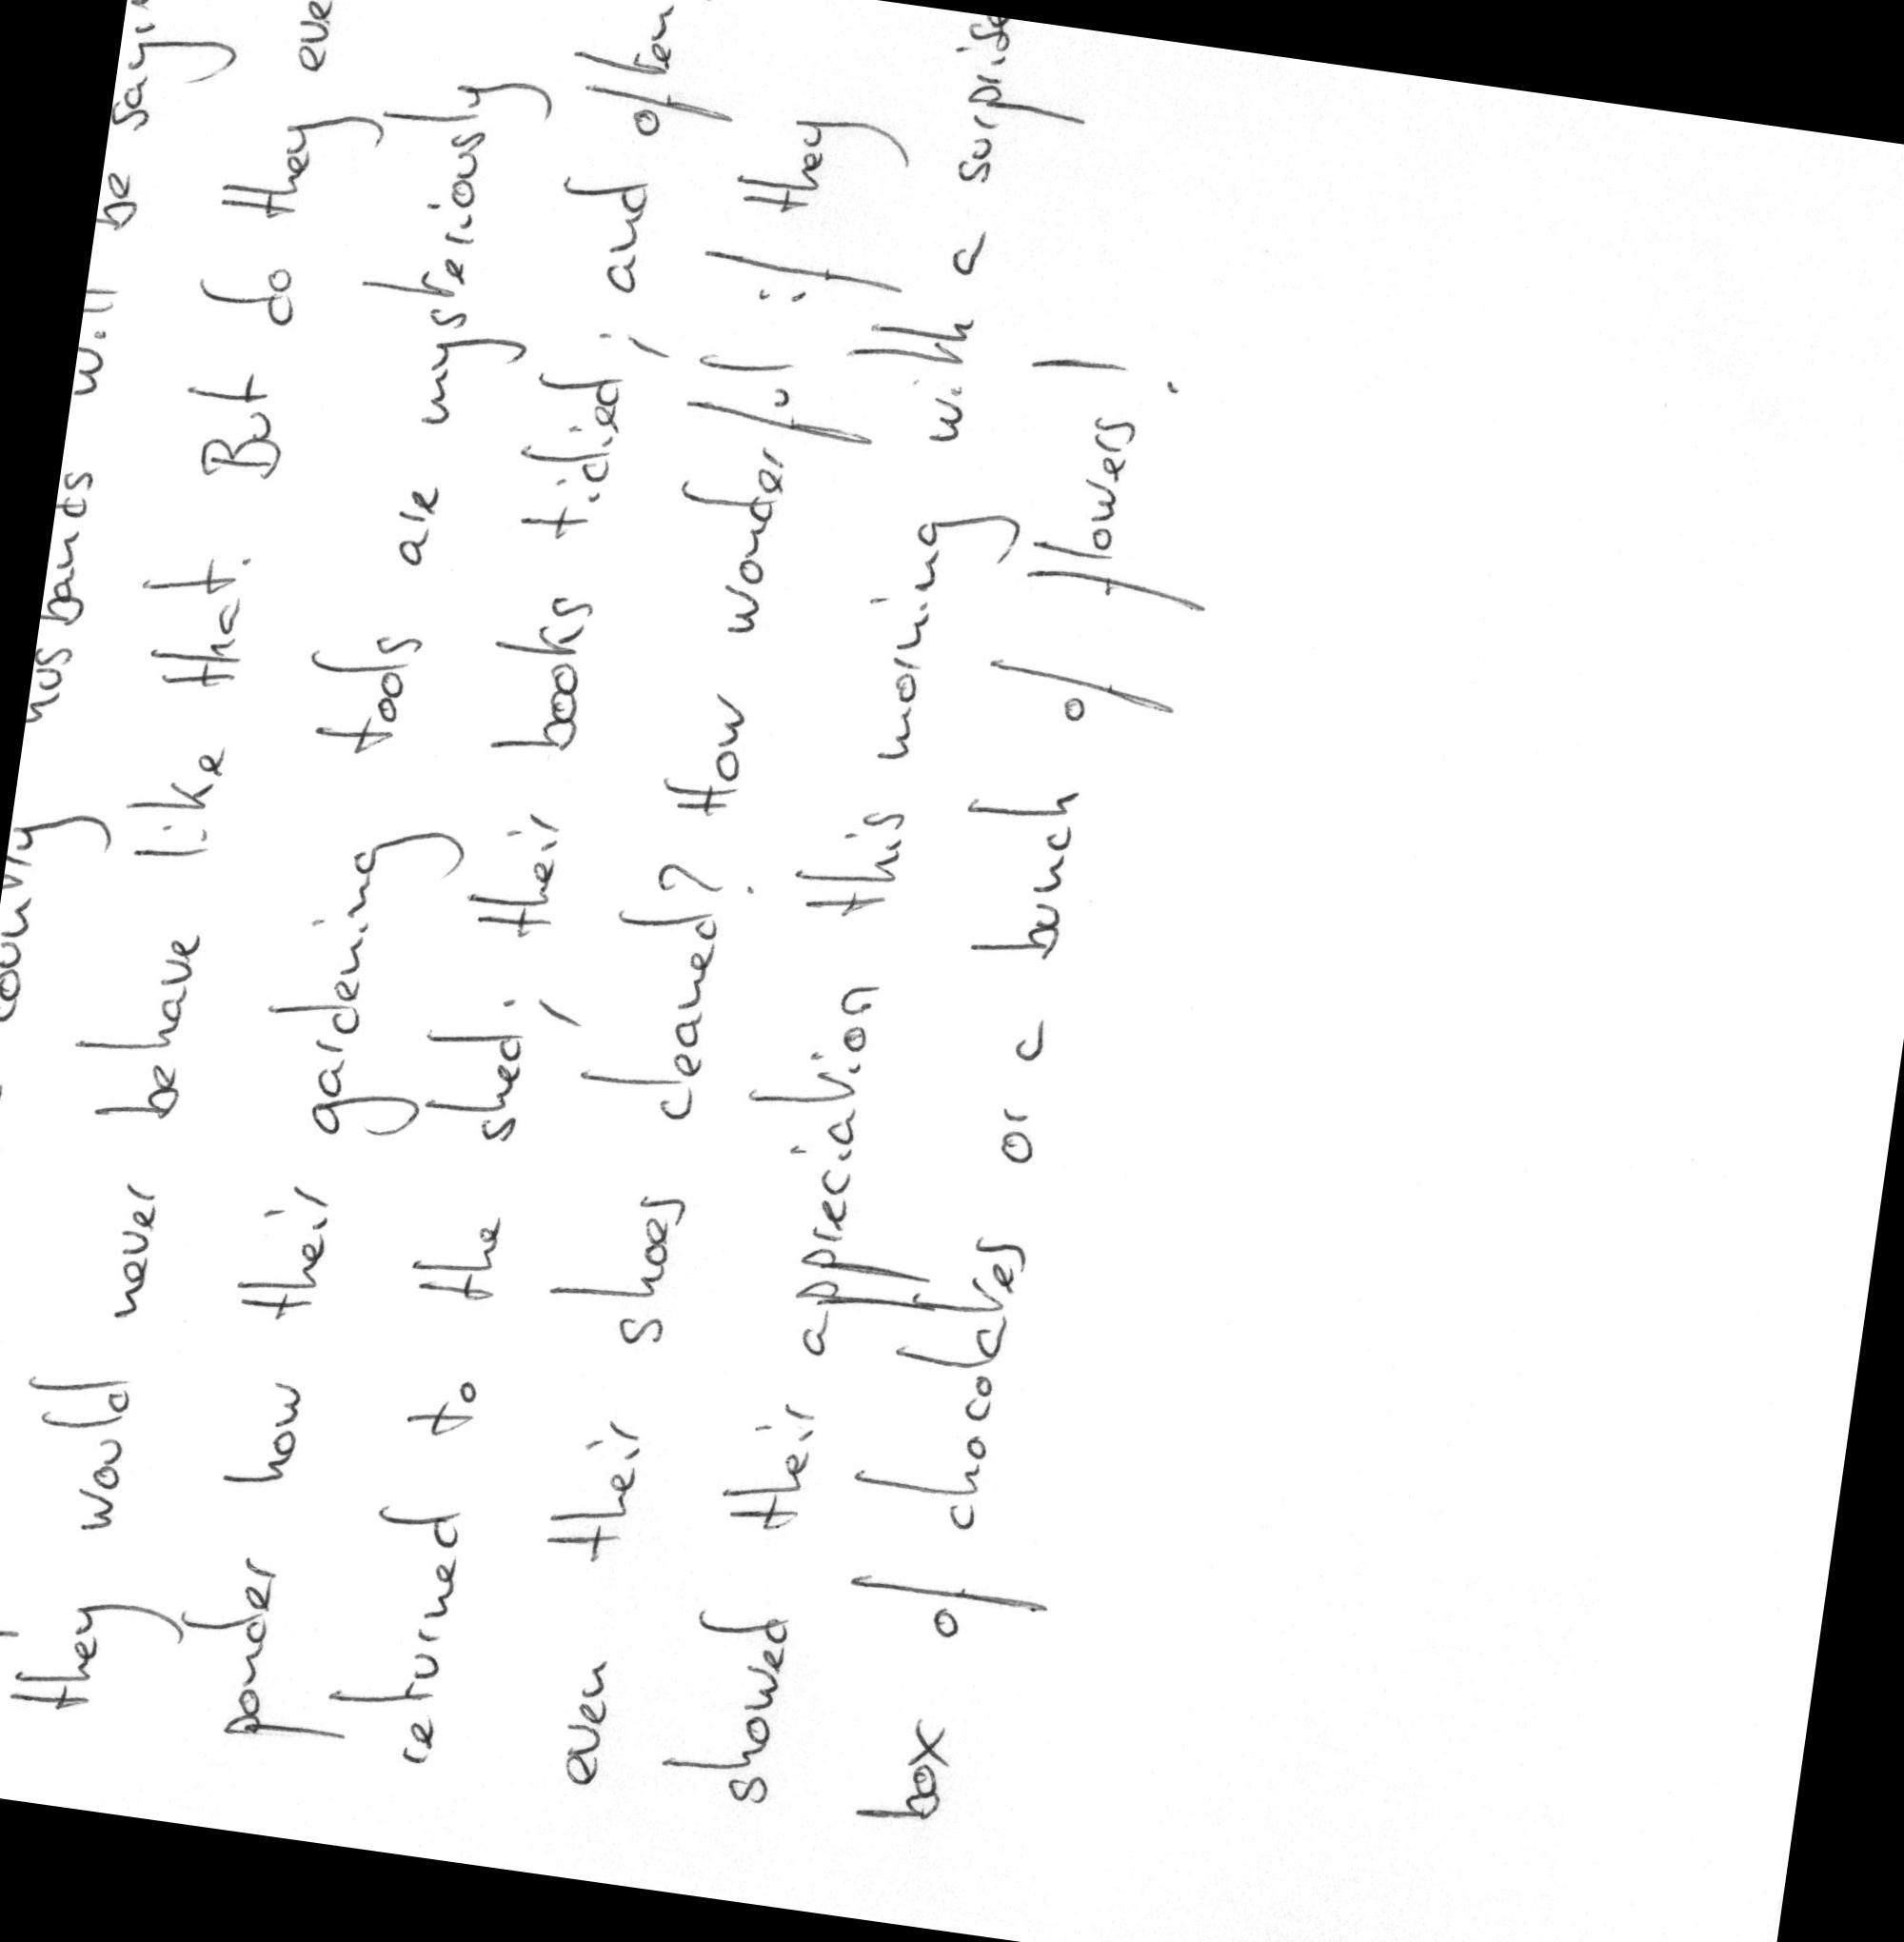 country husbands will be sayi
they would never behave like that. But do they eve
ponder how their gardening tools are mysteriously
returned to the shed; their books tidied; and often
even their shoes cleaned? How wonderful if they
showed their appreciation this morning with a surprise
box of chocolates or a bunch of flowers!